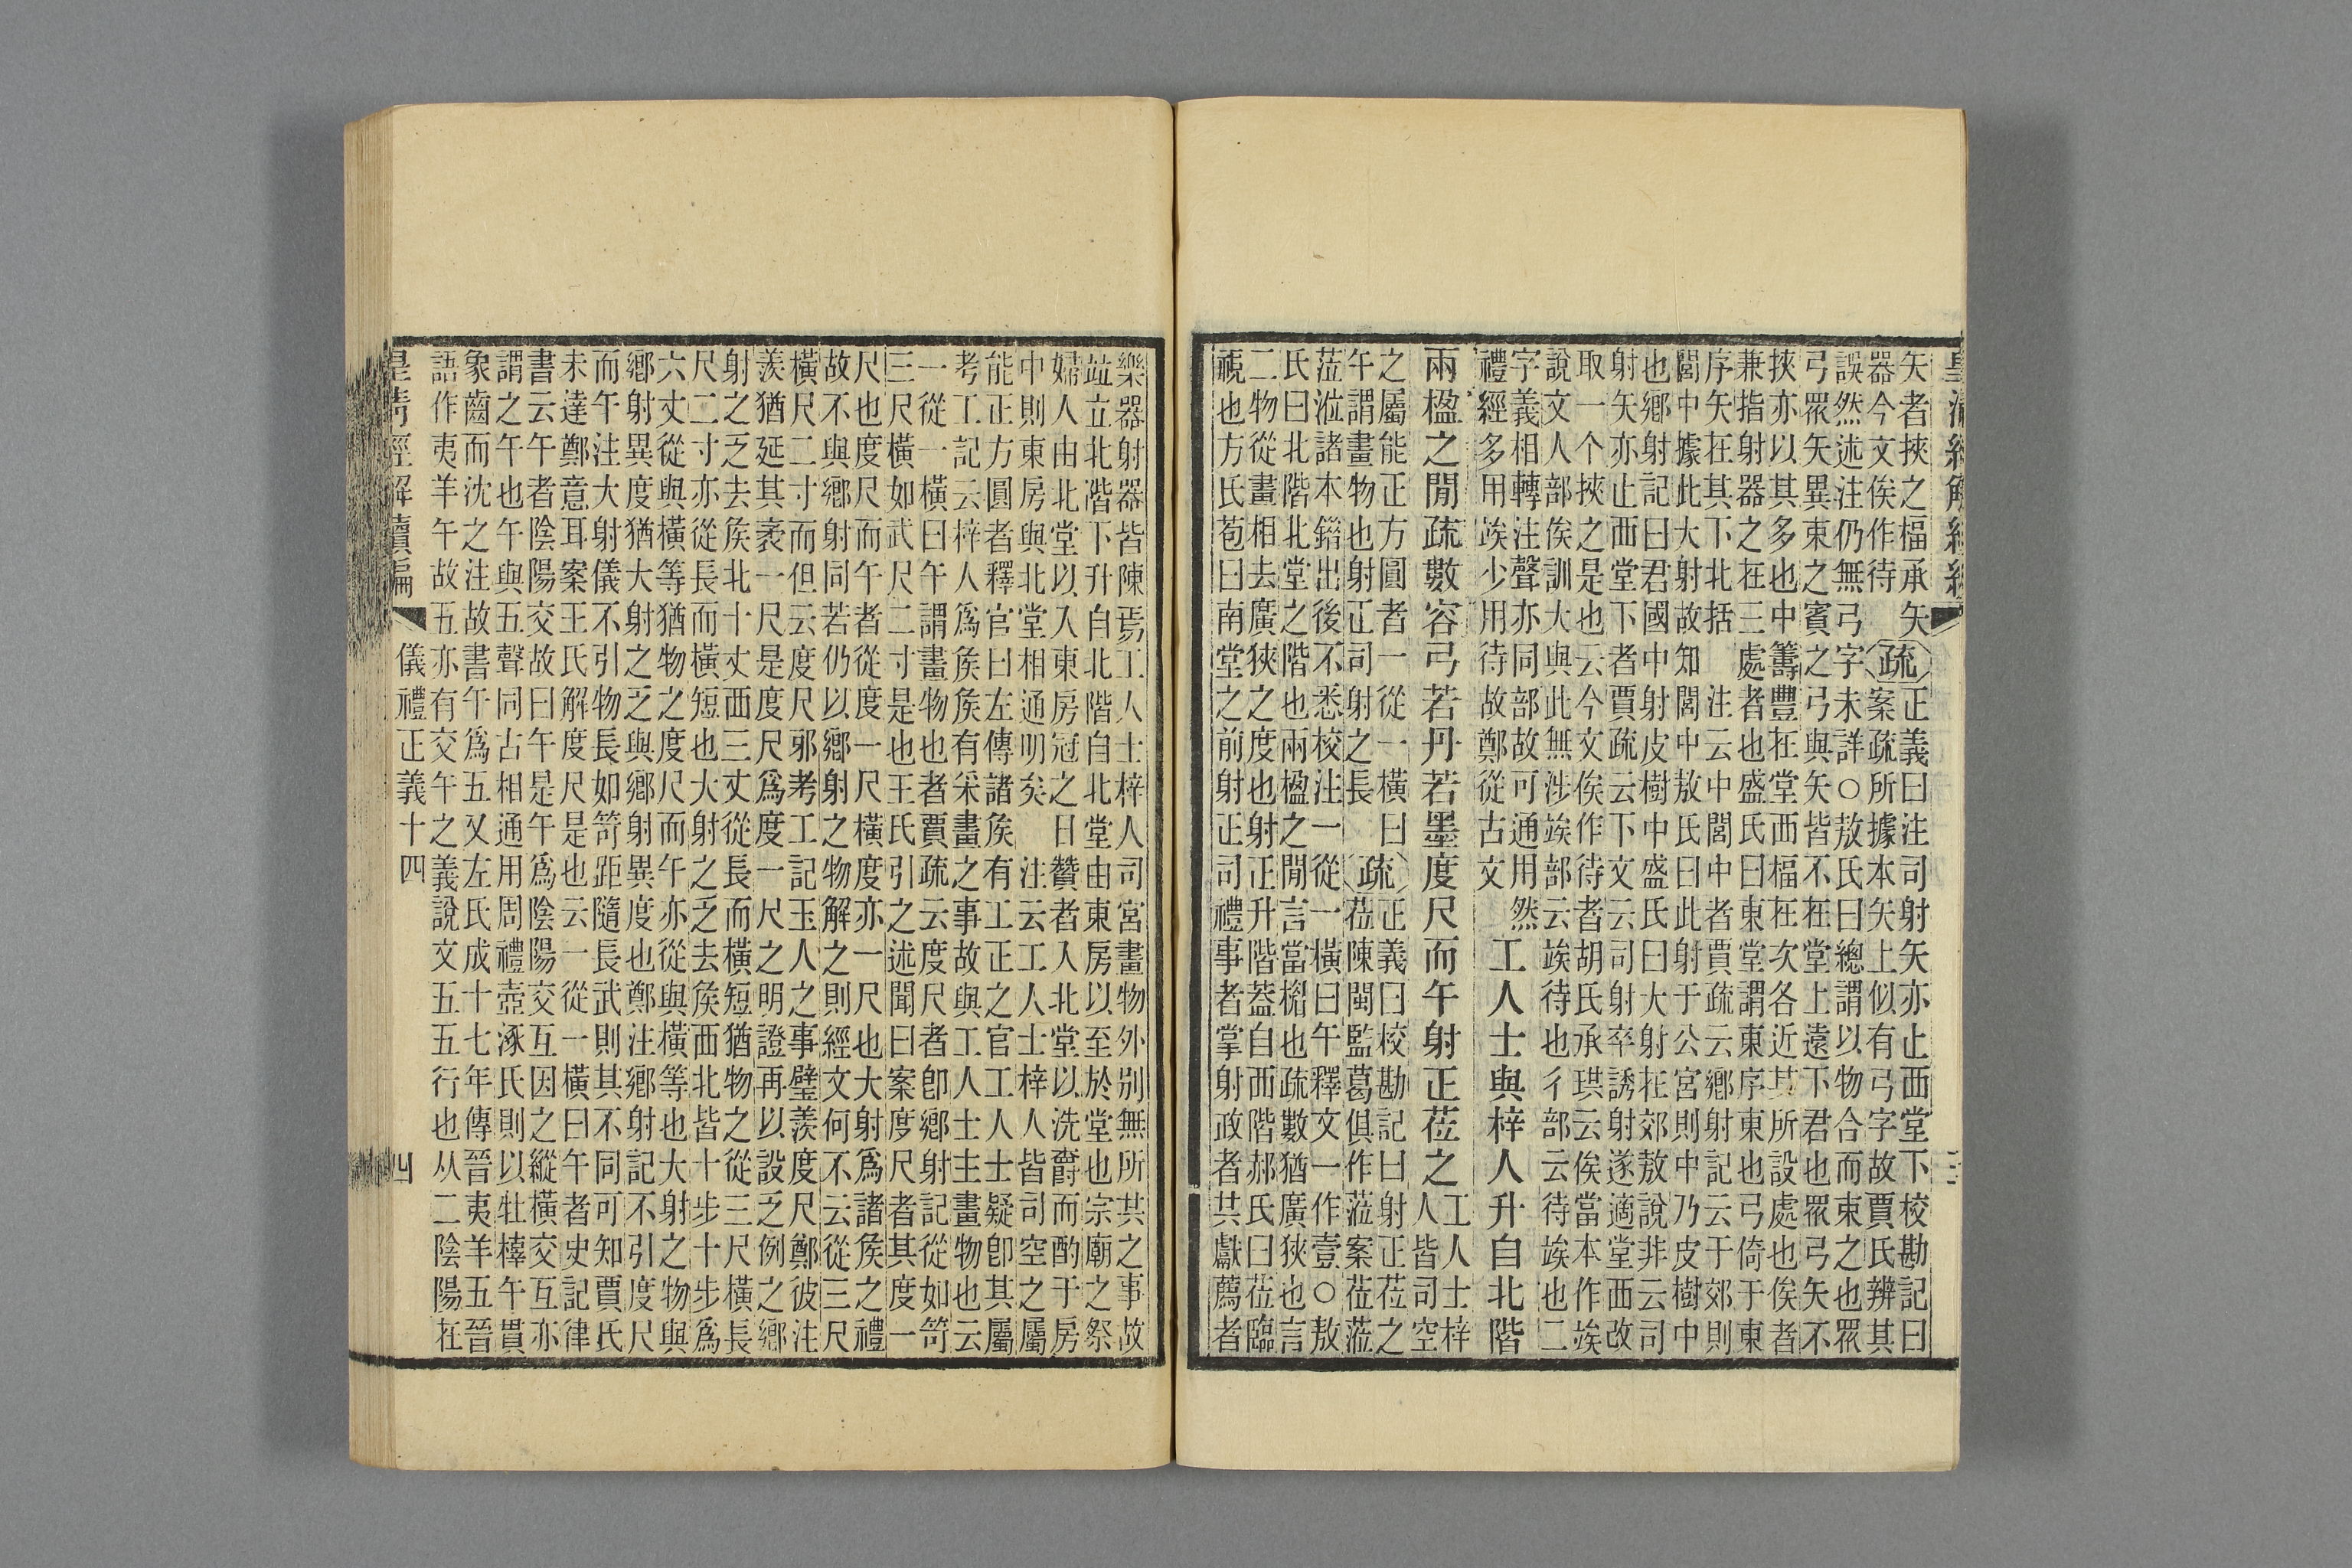 皇清經解續編
矢者挾之楅承矢
器今文俟作待
疏
正義曰注司射矢亦止西堂下校勘記曰
案疏所據本矢上似有弓字故賈氏辨其
誤然述注仍無弓字未詳○敖氏曰總謂以物合而束之也眾
弓眾矢異束之賓之弓與矢皆不在堂上遠下君也眾弓矢不
挾亦以其多也中籌豐在堂西楅在次各近其所設處也俟者
兼指射器之在三處者也盛氏曰東堂謂東序東也弓倚于東
序矢在其下北括 注云中閭中者賈疏云鄉射記云于郊則
閭中據此大射故知閭中敖氏曰此射于公宮則中乃皮樹中
也鄉射記曰君國中射皮樹中盛氏曰大射在郊敖說非云司
射矢亦止西堂下者賈疏云下文云司射卒誘射遂適堂西改
取一个挾之是也云今文俟作待者胡氏承珙云俟當本作竢
說文人部俟訓大與此無涉竢部云竢待也彳部云待竢也二
字義相轉注聲亦同部故可通用然
禮經多用竢少用待故鄭從古文
工人士與梓人升自北階
兩楹之閒疏數容弓若丹若墨度尺而午射正莅之
工人士梓
人皆司空
之屬能正方圓者一從一橫曰
午謂畫物也射正司射之長
疏
正義曰校勘記曰射正莅之
莅陳閩監葛俱作蒞案莅蒞
莅涖諸本錯出後不悉校注一從一橫曰午釋文一作壹○敖
氏曰北階北堂之階也兩楹之閒言當楣也疏數猶廣狹也言
二物從畫相去廣狹之度也射正升階葢自西階郝氏曰莅臨
視也方氏苞曰南堂之前射正司禮事者掌射政者共獻薦者
樂器射器皆陳焉工人士梓人司宮畫物外別無所共之事故
竝立北階下升自北階自北堂由東房以至於堂也宗廟之祭
婦人由北堂以入東房冠之日贊者入北堂以洗爵而酌于房
中則東房與北堂相通明矣 注云工人士梓人皆司空之屬
能正方圓者釋官曰左傳諸侯有工正之官工人士疑卽其屬
考工記云梓人爲侯侯有采畫之事故與工人士主畫物也云
一從一橫曰午謂畫物也者賈疏云度尺者卽鄉射記從如笴
三尺橫如武尺二寸是也王氏引之述聞曰案度尺者其度一
尺也度尺而午者從度一尺橫度亦一尺也大射爲諸侯之禮
故不與鄉射同若仍以鄉射之物解之則經文何不云從三尺
橫尺二寸而但云度尺邪考工記玉人之事璧羨度尺鄭彼注
羨猶延其袤一尺是度尺爲度一尺之明證再以設乏例之鄉
射之乏去侯北十丈西三丈從長而橫短猶物之從三尺橫長
尺二寸亦從長而橫短也大射之乏去侯西北皆十步十步爲
六丈從與橫等猶物之度尺而午亦從與橫等也大射之物與
鄉射異度猶大射之乏與鄉射異度也鄭注鄉射記不引度尺
而午注大射儀不引物長如笴距隨長武則其不同可知賈氏
未達鄭意耳案王氏解度尺是也云一從一橫曰午者史記律
書云午者陰陽交故曰午是午爲陰陽交互因之縱橫交互亦
謂之午也午與五聲同古相通用周禮壺涿氏則以牡橭午貫
象齒而沈之注故書午爲五又左氏成十七年傳晉夷羊五晉
語作夷羊午故五亦有交午之義說文五五行也从二陰陽在
皇清經解續編 儀禮正義十四 四